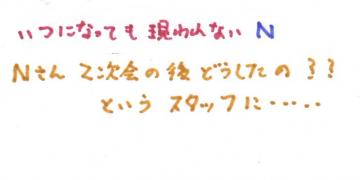 いつになっても現われない N
Nさん 2次会の後どうしたの??
という スタッフに‥‥‥